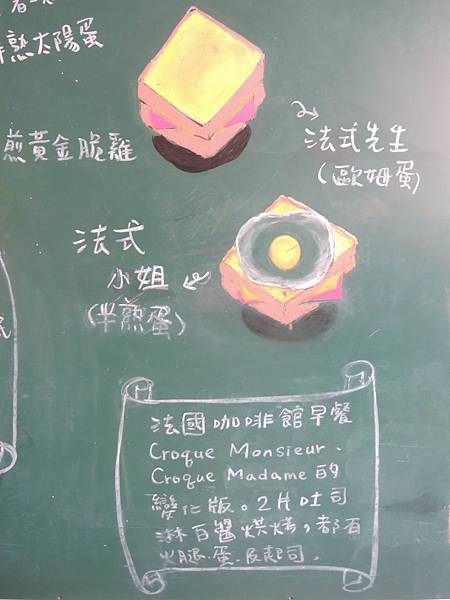 熟太陽蛋
煎黃金脆雞
法式先生
(歐姆蛋)
法式
小姐
(半熟蛋)
法國咖啡館早餐
Croque Monsieur、
Croque Madame的
變化版。2片吐司
淋白醬烘烤,都有
火腿.蛋.及起司.